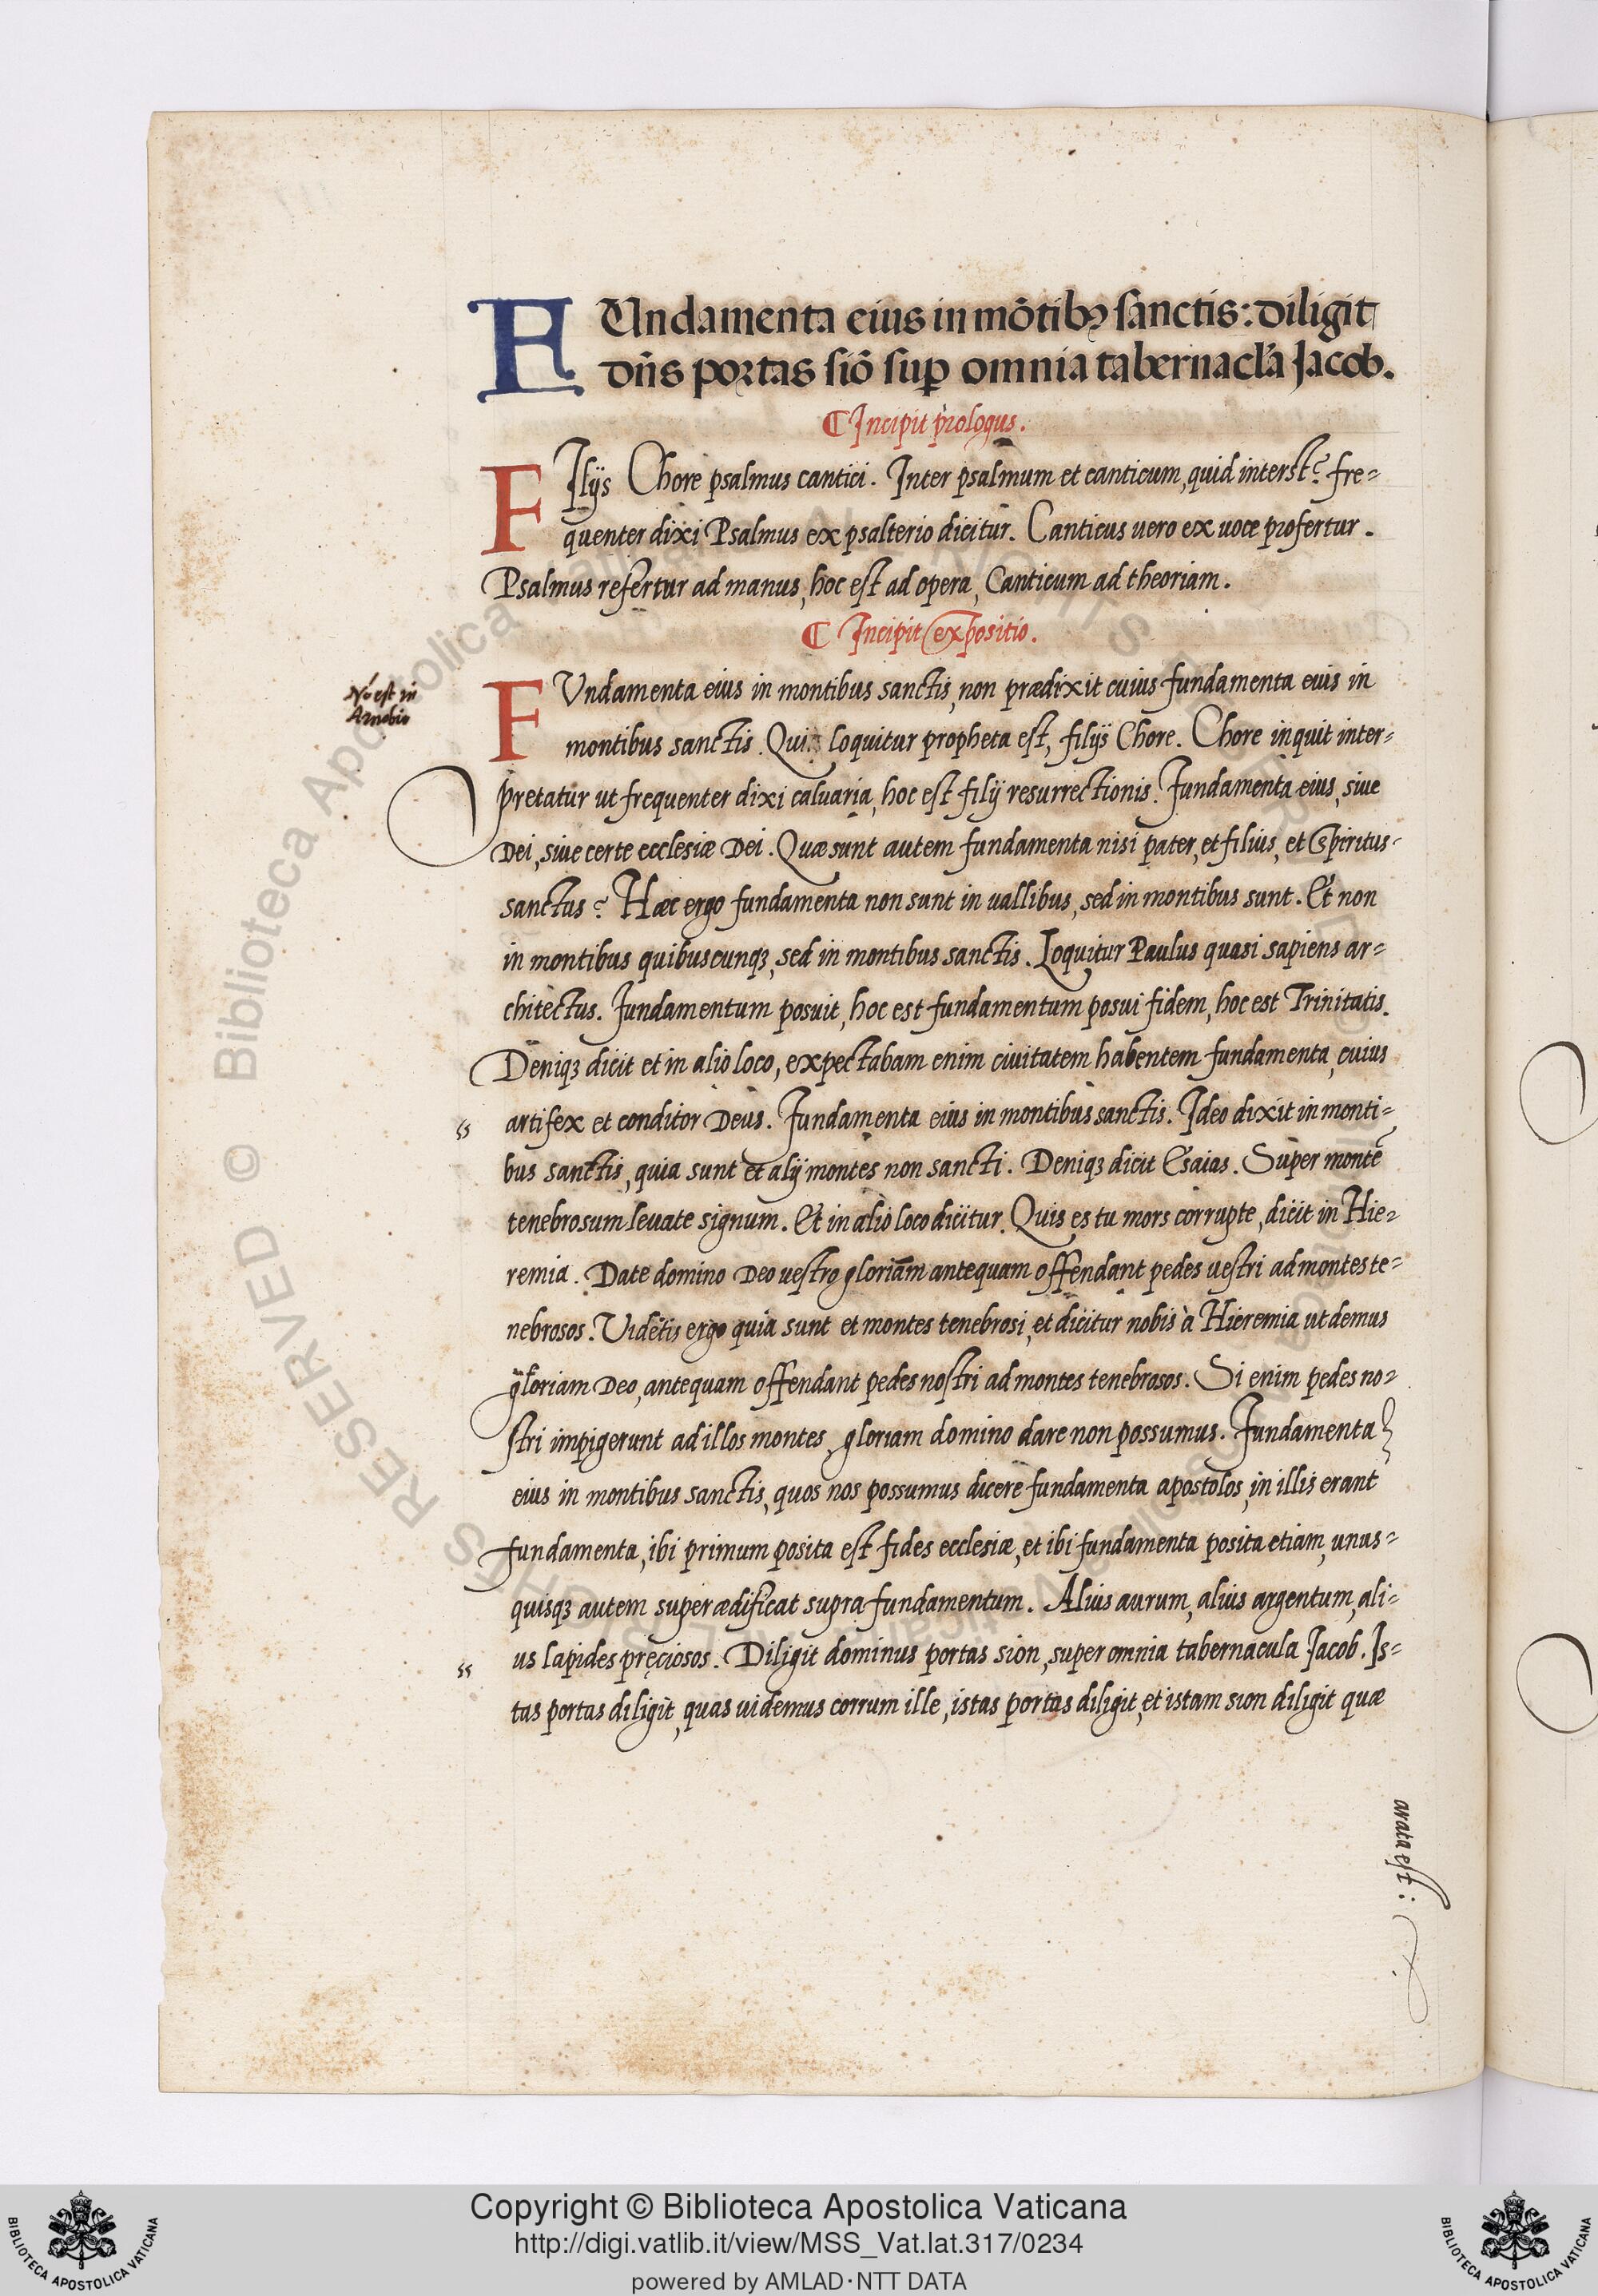 FUndamenta eius in mõtibꝰ sanctis: diligit
dñs portas siõ suꝑ omnia tabernacl'a Jacob.
¶ Incipit prologus.
FIlijs Chore psalmus cantici. Inter psalmum et canticum, quid interst? fre=
quenter dixi Psalmus ex psalterio dicitur. Canticus uero ex uoce profertur.
Psalmus refertur ad manus, hoc est ad opera, Canticum ad theoriam.
¶ Incipit expositio.
Nõ est in
Arnobio
FVndamenta eius in montibus sanctis, non prædixit cuius fundamenta euis in
montibus sanctis. Qui loquitur propheta est, filijs Chore. Chore inquit inter=
pretatur ut frequenter dixi caluaria, hoc est filij resurrectionis. Fundamenta eius, siue
Dei, siue certe ecclesiæ Dei. Quæ sunt autem fundamenta nisi pater, et filius, et Spiritus-
sanctus? Hæc ergo fundamenta non sunt in uallibus, sed in montibus sunt. Et non
in montibus quibuscunqꝫ, sed in montibus sanctis. Loquitur Paulus quasi sapiens ar=
chitectus. Fundamentum posuit, hoc est fundamentum posui fidem, hoc est Trinitatis.
Deniqꝫ dicit et in alio loco, expectabam enim ciuitatem habentem fundamenta, cuius
" artifex et conditor Deus. Fundamenta eius in montibus sanctis. Ideo dixit in monti=
bus sanctis, quia sunt et alij montes non sancti. Deniqꝫ dicit Esaias. Super montẽ
tenebrosum leuate signum. Et in alio loco dicitur. Quis es tu mors corrupte, dicit in Hie=
remia. Date domino Deo uestro gloriam antequam offendant pedes uestri ad montes te=
nebrosos. Videtis ergo quia sunt et montes tenebrosi, et dicitur nobis à Hieremia ut demus
gloriam Deo, antequam offendant pedes nostri ad montes tenebrosos. Si enim pedes no=
stri impigerunt ad illos montes, gloriam domino dare non possumus. Fundamenta
eius in montibus sanctis, quos nos possumus dicere fundamenta apostolos, in illis erant
fundamenta, ibi primum posita est fides ecclesiæ, et ibi fundamenta posita etiam, unus=
quisqꝫ autem superædificat supra fundamentum. Alius aurum, alius argentum, ali=
" us lapides pręciosos. Diligit dominus portas sion, super omnia tabernacula Jacob. Is=
tas portas diligit, quas uidemus corrum ille, istas portas diligit, et istam sion diligit quæ
arata est:
Copyright © Biblioteca Apostolica Vaticana
http://digi.vatlib.it/view/MSS_Vat.lat.317/0234
powered by AMLAD·NTT DATA
BIBLIOTECA APOSTOLICA VATICANA
BIBLIOTECA APOSTOLICA VATICANA